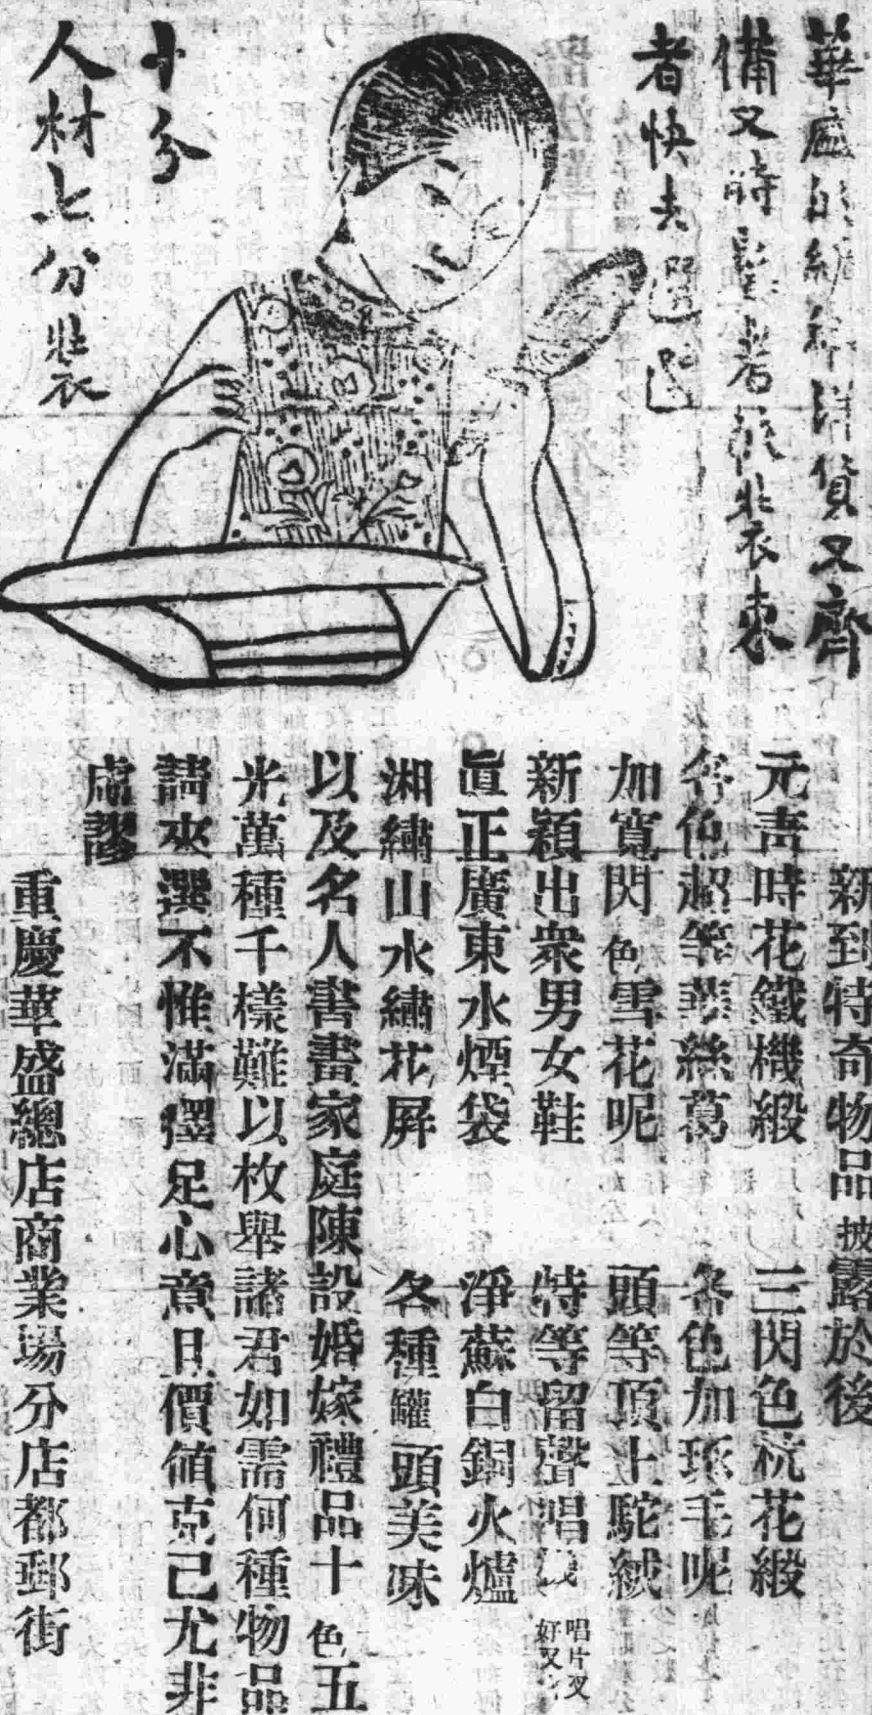 華盛的綢緞洋貨又齊
備又時髦若衣裝束
者快去選選
十分
人材七分裝衣
新到特奇物品披露於後
元青時花鐵機緞 三閃色杭花緞
各色超等華絲葛 各色加毛呢
加寬閃色雪花呢 頭等頂上駝絨
新穎出衆男女鞋 特等留聲唱 唱片又好又
眞正廣東水煙袋 淨蘇白銅火爐
湘繡山水繡花屛 各種罐頭美味
以及名人書畫家庭陳設婚嫁禮品十色五
光萬種千樣難以枚舉諸君如需何種物品
請來選不惟滿擇足心意且價値克己尤非
虛謬
重慶華盛總店商業場分店都郵街